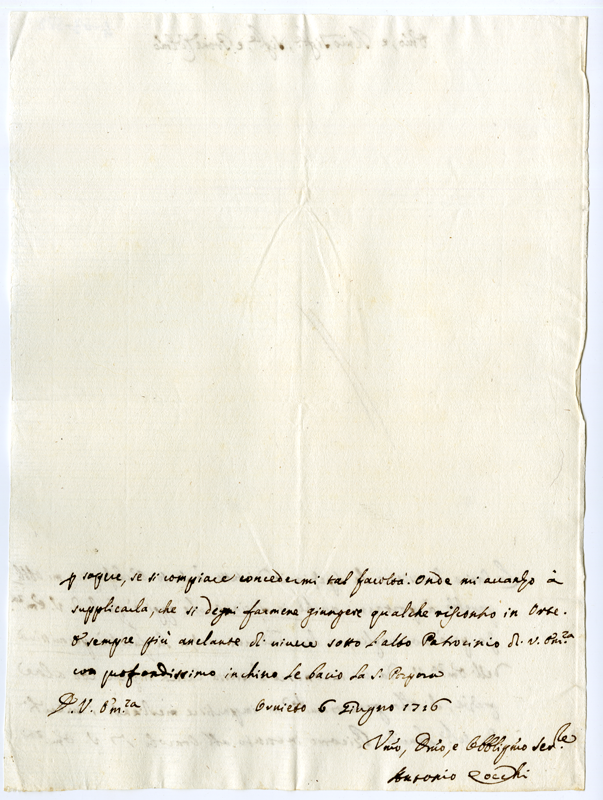 p sapere, se si compiace concedermi tal facoltà. Onde mi avanzo à
supplicarla, che si degni farmene giungere qualche riscontro in Orte.
E sempre più anelante di vivere sotto l'alto Patrocinio di V. Em.za
con profondissimo inchino le bacio la S. Porpora
D. V. Em.za Orvieto 6 Giugno 1716
Umo, Dmo, e Obbligmo Ser.le
Antonio Zocchi